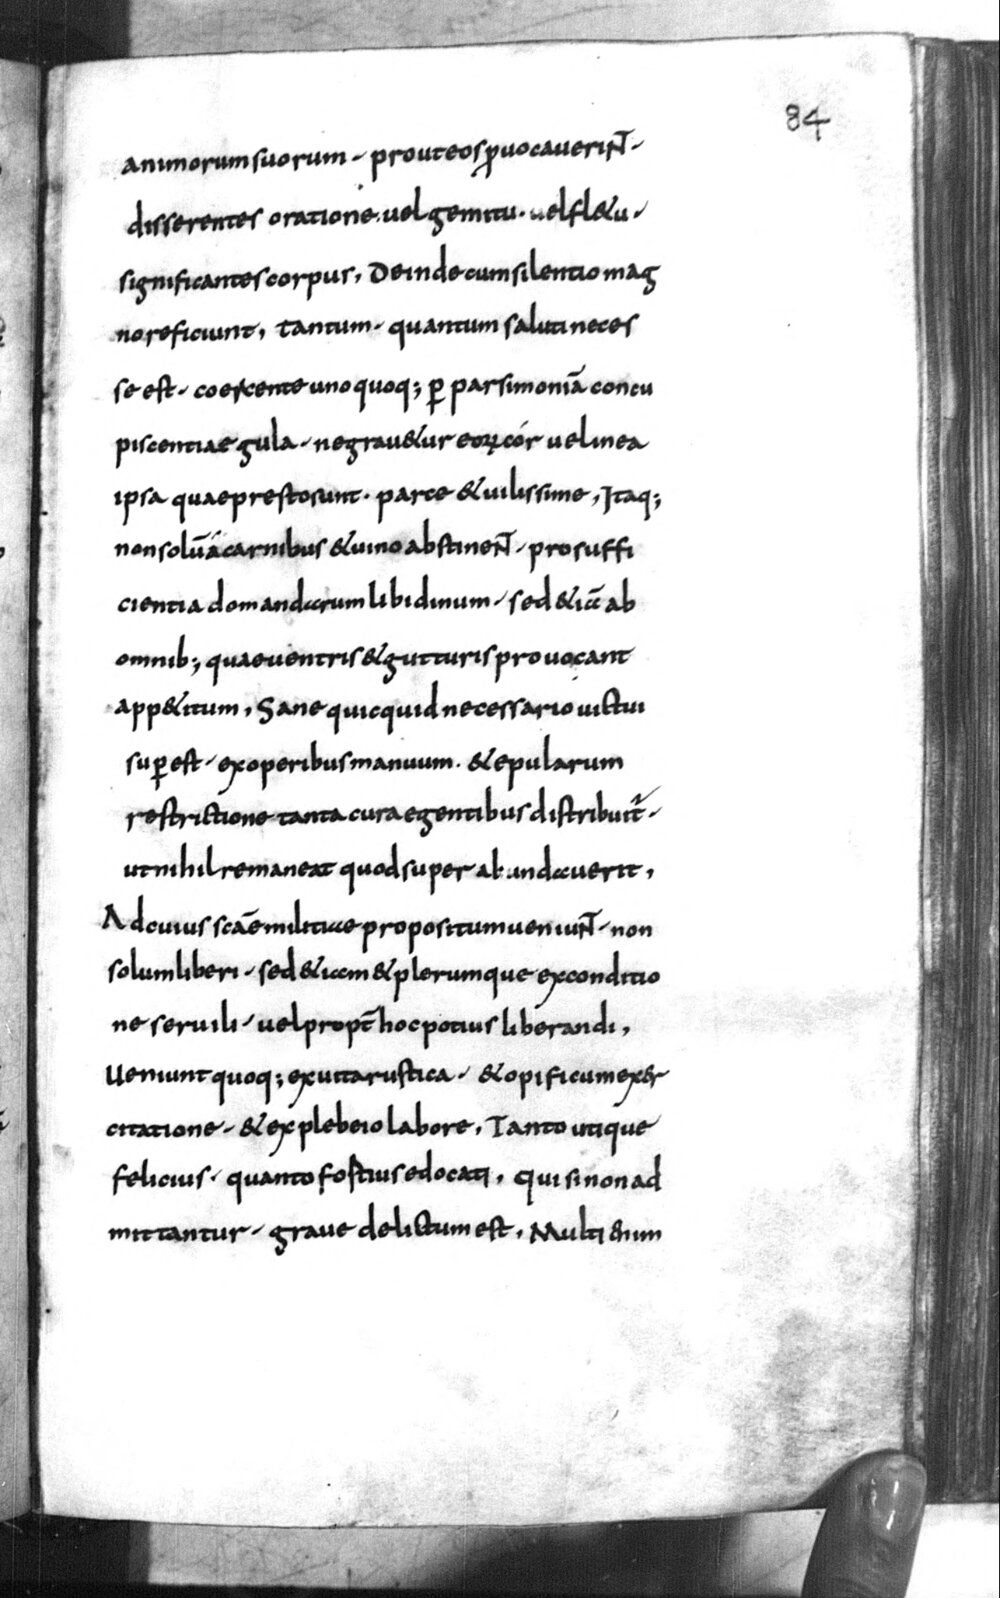 84
animorum suorum · prout eos ꝓuocauerinт̄ ·
disserentes oratione · uel gemitu · uel fl&u ·
significantes corpus, Deinde cum silentio mag
no reficiunt, tantum · quantum saluti neces
se est · coercente unoquoq; ꝑ parsimoniā concu
piscentiae gula · ne grau&ur eoꝝ cór uel in ea
ipsa quae presto sunt · parce & uilissime, Itaq;
non solū á carnibus & uino abstinent̄ · pro suffi
cientia domandarum libidinum · sed &iā ab
omnib; quae uentris & gutturis prouocant
app&itum, Sane quicquid necessario uictui
suꝑest · ex operibus manuum · & epularum
restrictione tanta cura egentibus distribuit̄ ·
ut nihil remaneat quod superabundauerit,
Ad cuius scāe militiae propositum ueniunt̄ · non
solum liberi · sed &iam & plerumque ex conditio
ne seruili · uel propt̄ hoc potius liberandi,
Ueniunt quoq; ex uita rustica · & opificum ex&r
citatione · & ex plebeio labore, Tanto utique
felicius · quanto fortius edocati, qui si non ad
mittantur · graue delictum est, Multi &nim